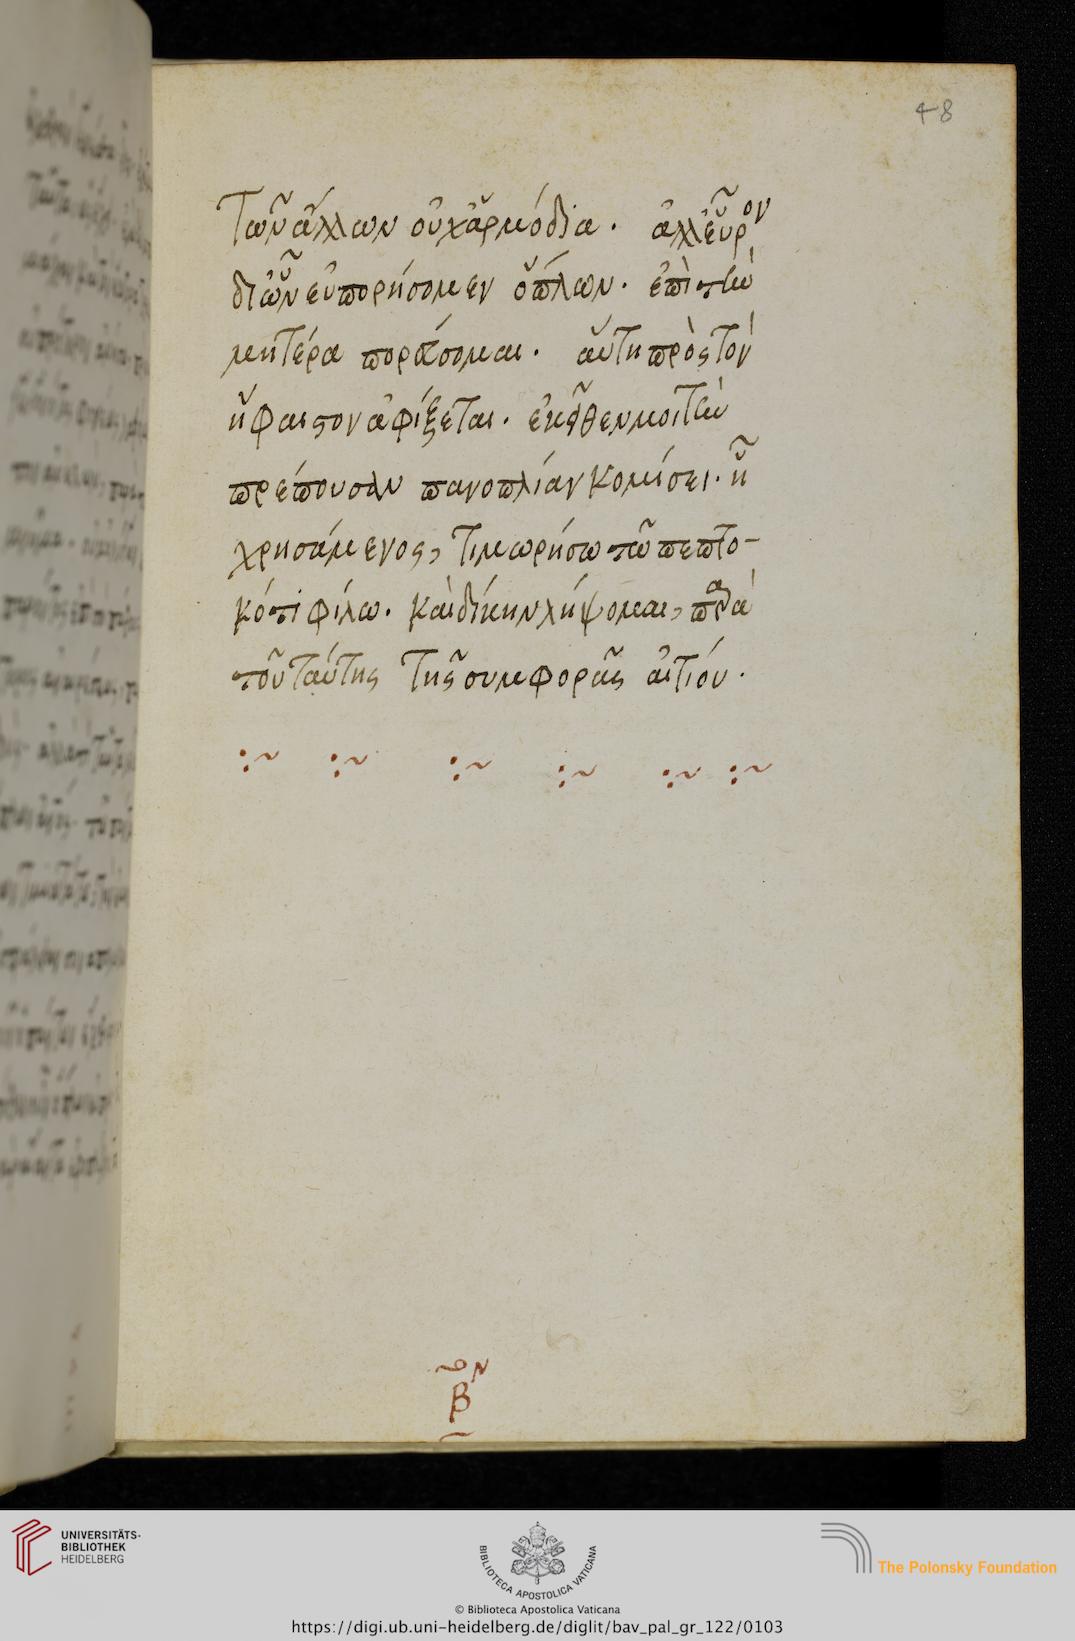 48
τῶν ἄλλων οὐχ ἁρμόδια. ἀλλ εὗρον
δι ὧν εὐπορήσομεν ὅπλων. ἐπὶ τὴν
μητέρα πορεύσομαι. αὕτη πρὸς τὸν
ἥφαιστον ἀφίξεται. ἐκεῖθεν μοι τὴν
πρέπουσαν πανοπλίαν κομίσει. ᾗ
χρησάμενος, τιμωρήσω τῶ πεπτο-
κότι φίλω. καὶ δίκην λήψομαι, παρὰ
τοῦ ταύτης τῆς συμφορᾶς αἰτίου.
β
UNIVERSITÄTS-
BIBLIOTHEK
HEIDELBERG
BIBLIOTECA APOSTOLICA VATICANA
The Polonsky Foundation
© Biblioteca Apostolica Vaticana
https://digi.ub.uni-heidelberg.de/diglit/bav_pal_gr_122/0103